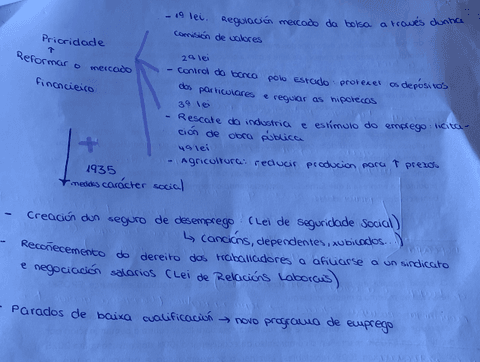 Prioridade
↑
Reformar o mercado
financieiro
- 1ª lei. Regulación mercado da bolsa a través dunha
comisión de valores
2ª lei
- control da banca polo estado: protexer os depósitos
dos particulares e regular as hipotecas
3ª lei
- Rescate da industria e estímulo do emprego: licita-
ción de obra pública
4ª lei
- Agricultura: reducir producion para ↑ prezos
+
1935
medidas carácter social
- Creación dun seguro de desemprego (Lei de seguridade Social)
↳ anciáns, dependentes, xubilados...)
- Recoñecemento do dereito dos traballadores a afiliarse a un sindicato
e negociación salarios (Lei de Relacións Laborais)
- Parados de baixa cualificación → novo programa de emprego